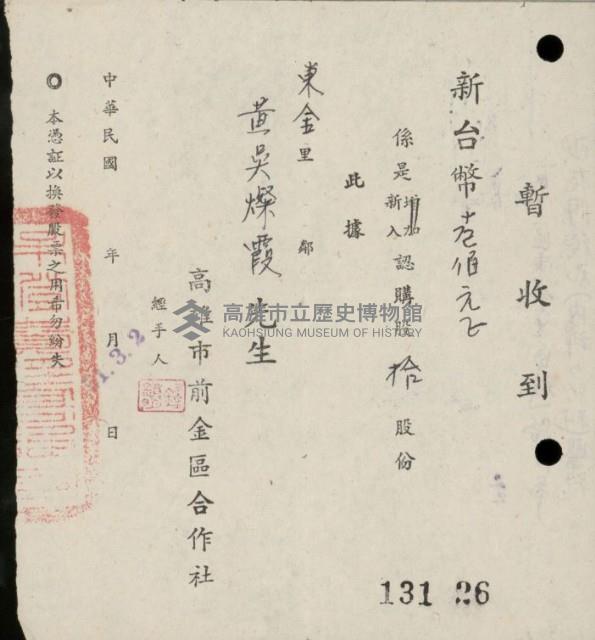 暫收到
新台幣壹佰元正
係是增加新入認購股拾股份
此據
東金里 鄰
黃吳燦霞先生
高雄市前金區合作社
經手人
中華民國 年 月 日
1.3.2
◎ 本憑証以換發股票之用希勿紛失
131 26
高雄市立歷史博物館
KAOHSIUNG MUSEUM OF HISTORY